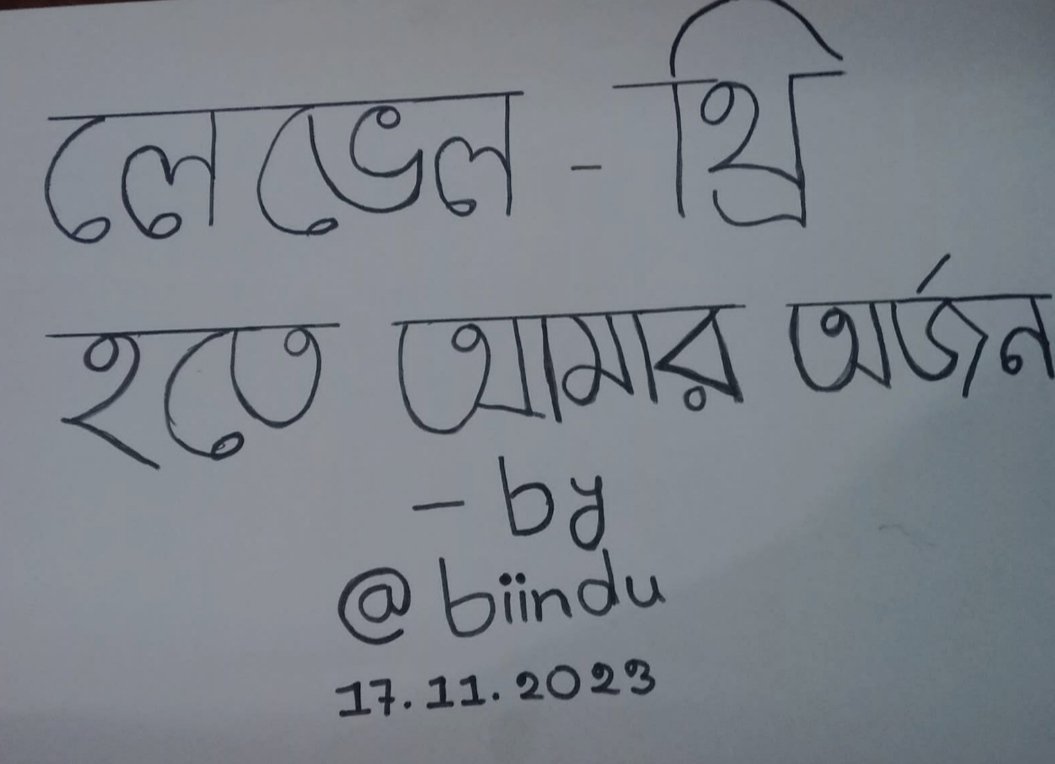 লেভেল - থ্রি
হতে আমার অর্জন
- by
@ biindu
17.11.2023